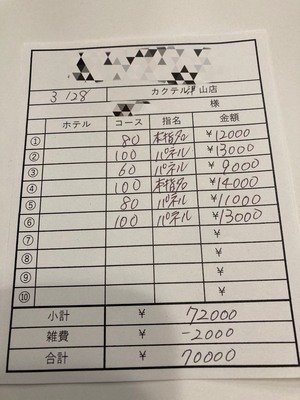 3.128 カクテル津山店
様
ホテル コース 指名 金額
① 80 本指名 ¥12000
② 100 パネル ¥13000
③ 60 パネル ¥9000
④ 100 本指名 ¥14000
⑤ 80 パネル ¥11000
⑥ 100 パネル ¥13000
⑦ ¥
⑧ ¥
⑨ ¥
⑩ ¥
小計 ¥ 72000
雑費 ¥ -2000
合計 ¥ 70000